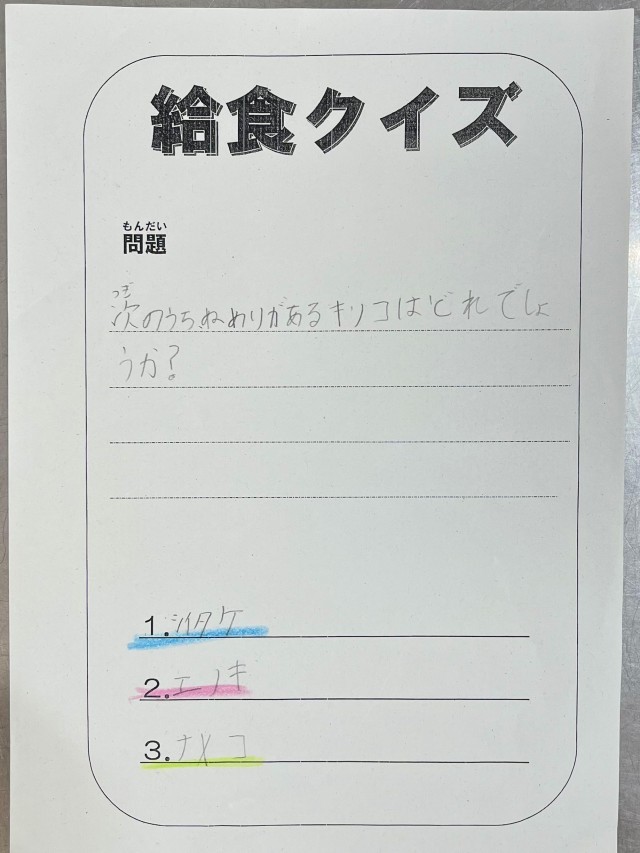 給食クイズ
もんだい
問題
つぎ
次のうちねめりがあるキノコはどれでしょ
うか?
1.シイタケ
2.エノキ
3.ナメコ